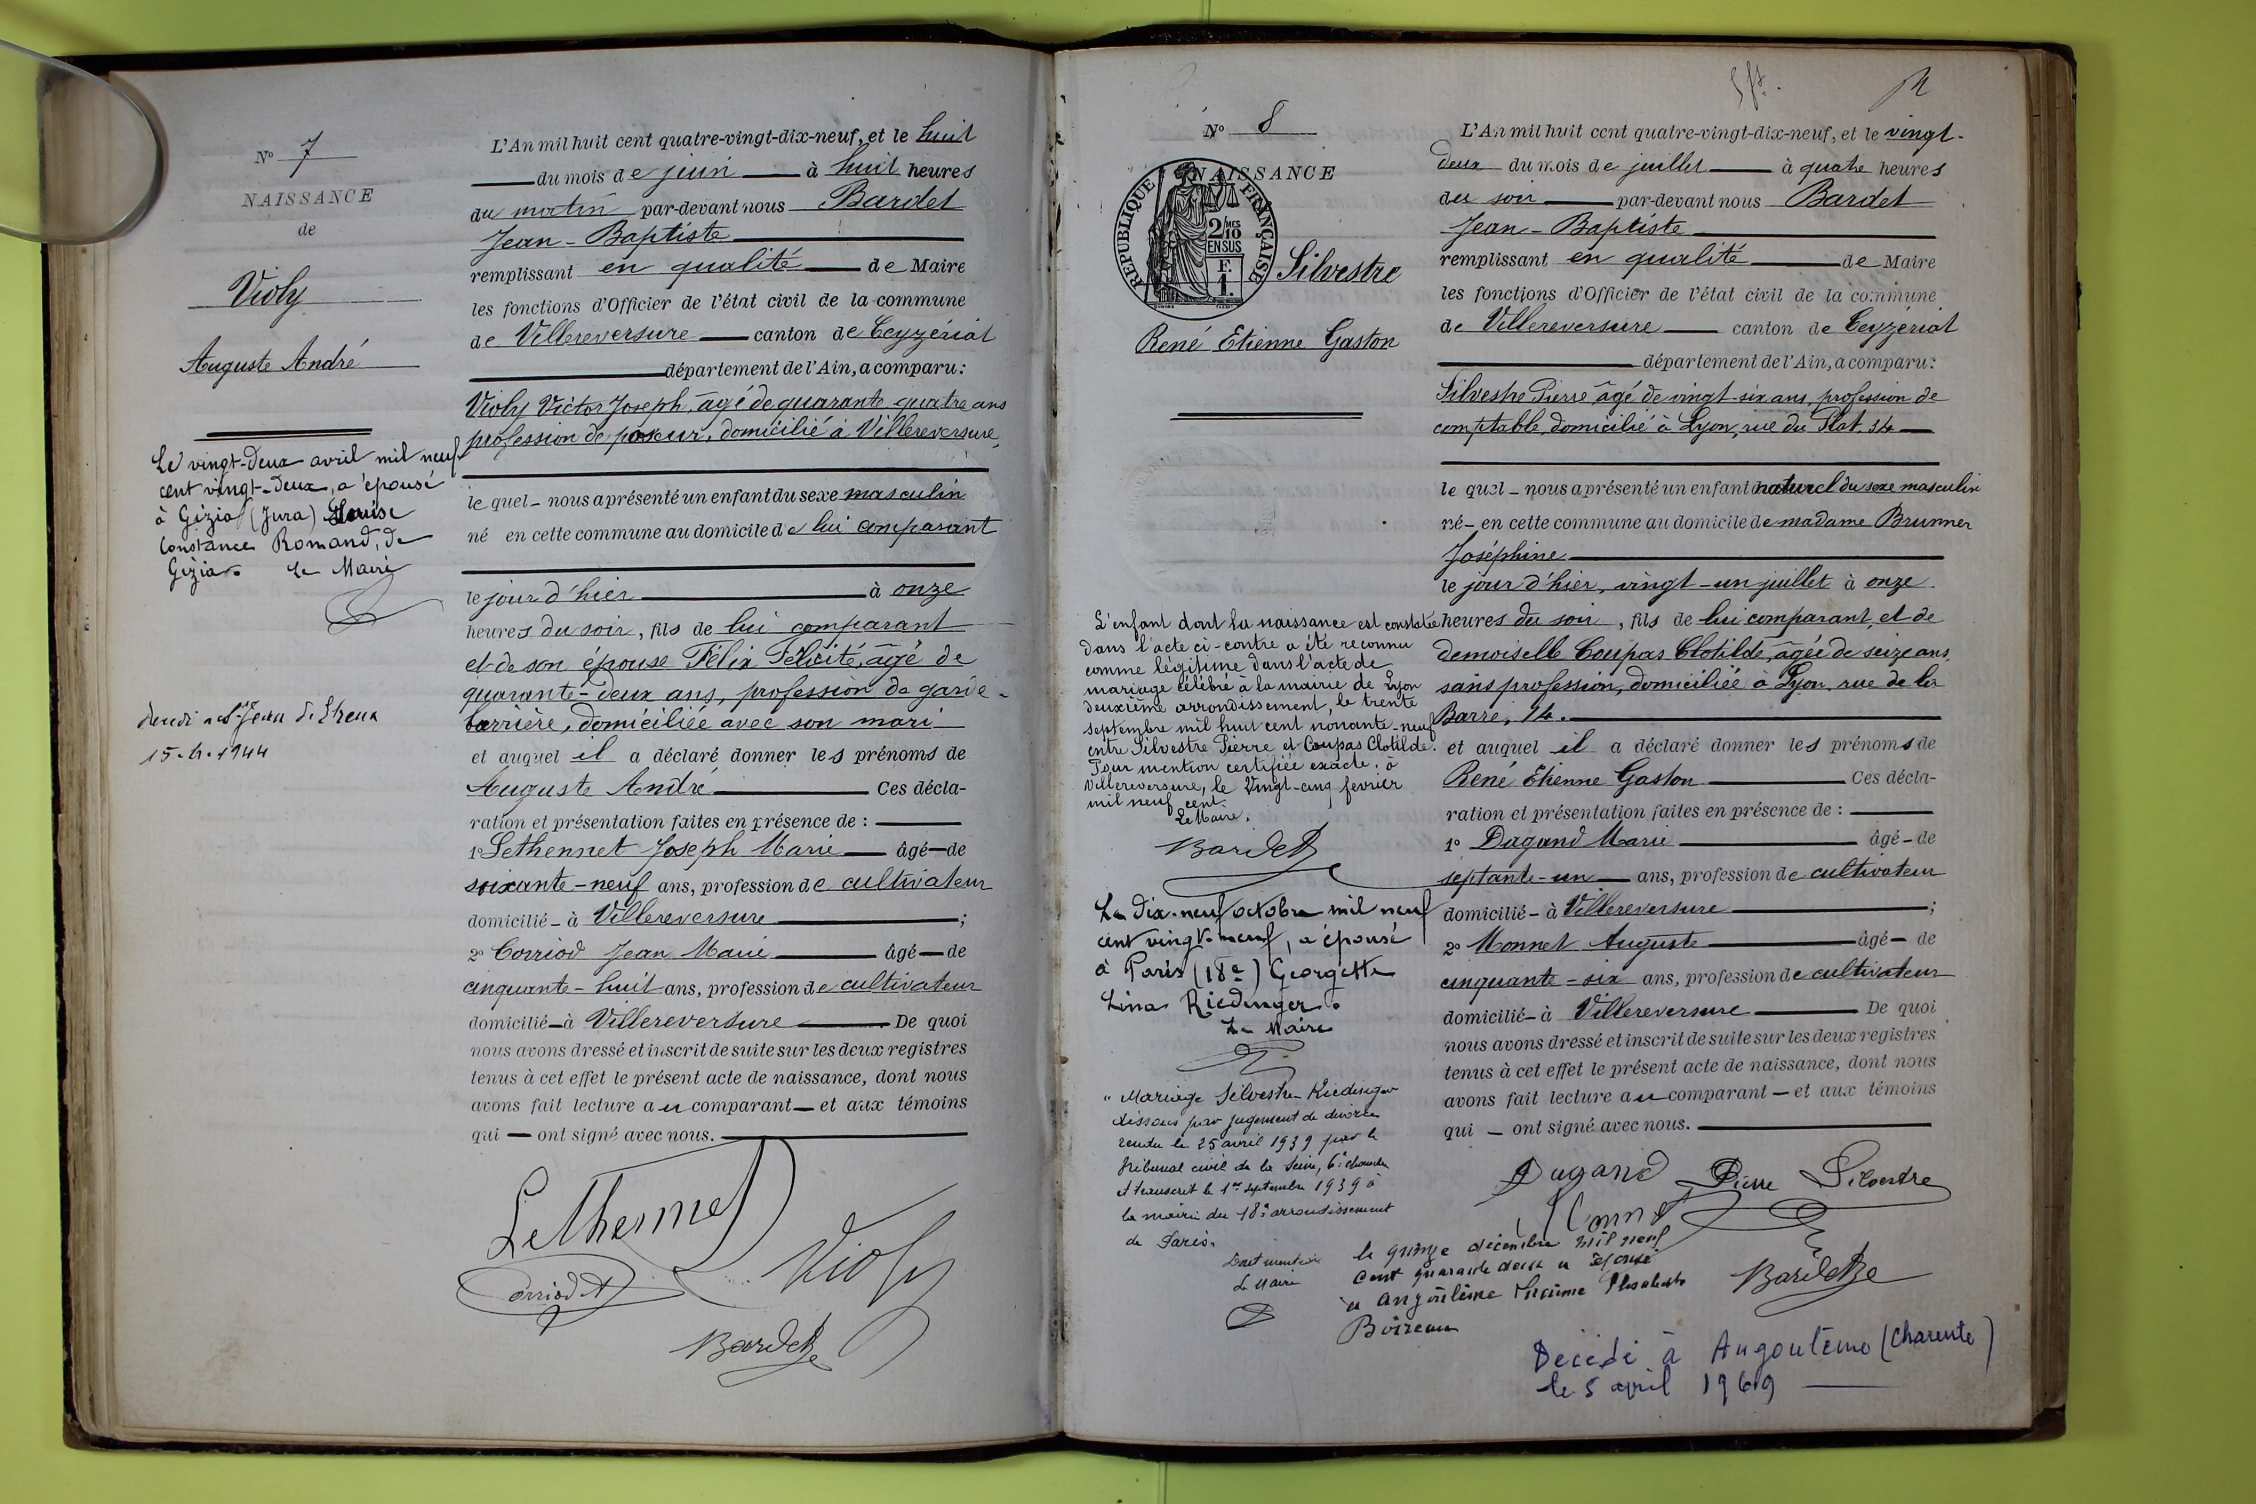 Nº 7
NAISSANCE
de
Violy
Auguste André
Le vingt-deux avril mil neuf
cent vingt-deux, a épousé
à Gizia (Jura) Louise
Constance Romand, de
Gizia. Le Maire
15-4-1944
L'An mil huit cent quatre-vingt-dix-neuf, et le huit
du mois de juin à huit heures
du matin par-devant nous Bardet
Jean-Baptiste
remplissant en qualité de Maire
les fonctions d'Officier de l'état civil de la commune
de Villereversure canton de Ceyzériat
département de l'Ain, a comparu:
Violy Victor Joseph, âgé de quarante quatre ans
profession de poseur, domicilié à Villereversure,
le quel nous a présenté un enfant du sexe masculin
né en cette commune au domicile de lui comparant
le jour d'hier à onze
heures du soir, fils de lui comparant
et de son épouse Félix Félicité, âgé de
quarante-deux ans, profession de garde-
barrière, domiciliée avec son mari
et auquel il a déclaré donner les prénoms de
Auguste André Ces décla-
ration et présentation faites en présence de :
1º Lethennet Joseph Marie âgé de
soixante-neuf ans, profession de cultivateur
domicilié à Villereversure ;
2º Corriod Jean Marie âgé de
cinquante-huit ans, profession de cultivateur
domicilié à Villereversure De quoi
nous avons dressé et inscrit de suite sur les deux registres
tenus à cet effet le présent acte de naissance, dont nous
avons fait lecture au comparant et aux témoins
qui ont signé avec nous.
Lethennet
Violy
Corriod
Bardet
Nº 8
NAISSANCE
RÉPUBLIQUE FRANÇAISE
2/10 MES
EN SUS
F.
1.
Silvestre
René Etienne Gaston
L'enfant dont la naissance est constatée
dans l'acte ci-contre a été reconnu
comme légitime dans l'acte de
mariage célébré à la mairie de Lyon
deuxième arrondissement, le trente
septembre mil huit cent nonante-neuf
entre Silvestre Pierre et Coupas Clotilde.
Pour mention certifiée exacte. à
Villereversure, le Vingt-cinq fevrier
mil neuf cent.
Le Maire.
Bardet
Le dix-neuf octobre mil neuf
cent vingt-neuf, a épousé
à Paris (18e) Georgette
Lina Riedinger.
Le Maire
"Mariage Silvestre-Riedinger
dissous par jugement de divorce
rendu le 25 avril 1939 par le
tribunal civil de la Seine, 6e chambre
et transcrit le 1er septembre 1939 à
la mairie du 18e arrondissement
de Paris.
Dont mention
Le Maire
L'An mil huit cent quatre-vingt-dix-neuf, et le vingt-
deux du mois de juillet à quatre heures
du soir par-devant nous Bardet
Jean-Baptiste
remplissant en qualité de Maire
les fonctions d'Officier de l'état civil de la commune
de Villereversure canton de Ceyzériat
département de l'Ain, a comparu:
Silvestre Pierre âgé de vingt-six ans, profession de
comptable, domicilié à Lyon, rue du Plat, 34
le quel nous a présenté un enfant naturel du sexe masculin
né en cette commune au domicile de madame Brunner
Joséphine
le jour d'hier, vingt-un juillet à onze
heures du soir, fils de lui comparant, et de
demoiselle Coupas Clotilde, âgée de seize ans,
sans profession, domiciliée à Lyon, rue de la
Barre, 14.
et auquel il a déclaré donner les prénoms de
René Etienne Gaston Ces décla-
ration et présentation faites en présence de :
1º Dagand Marie âgé de
septante-un ans, profession de cultivateur
domicilié à Villereversure ;
2º Monnet Auguste âgé de
cinquante-six ans, profession de cultivateur
domicilié à Villereversure De quoi
nous avons dressé et inscrit de suite sur les deux registres
tenus à cet effet le présent acte de naissance, dont nous
avons fait lecture au comparant et aux témoins
qui ont signé avec nous.
Dugand Pierre Silvestre
Monnet
Bardet
le quinze décembre mil neuf
cent quarante deux a épousé
à Angoulême
Boireau
Décédé à Angoulême (Charente)
le 5 april 1969